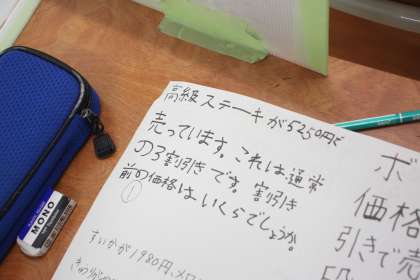 高級ステーキが5250円で
売っています。これは通常
の3割引きです。割引き
前の価格はいくらでしょうか。
①
すいかが1980円、メロ
ボ
価格
引きで売
MONO